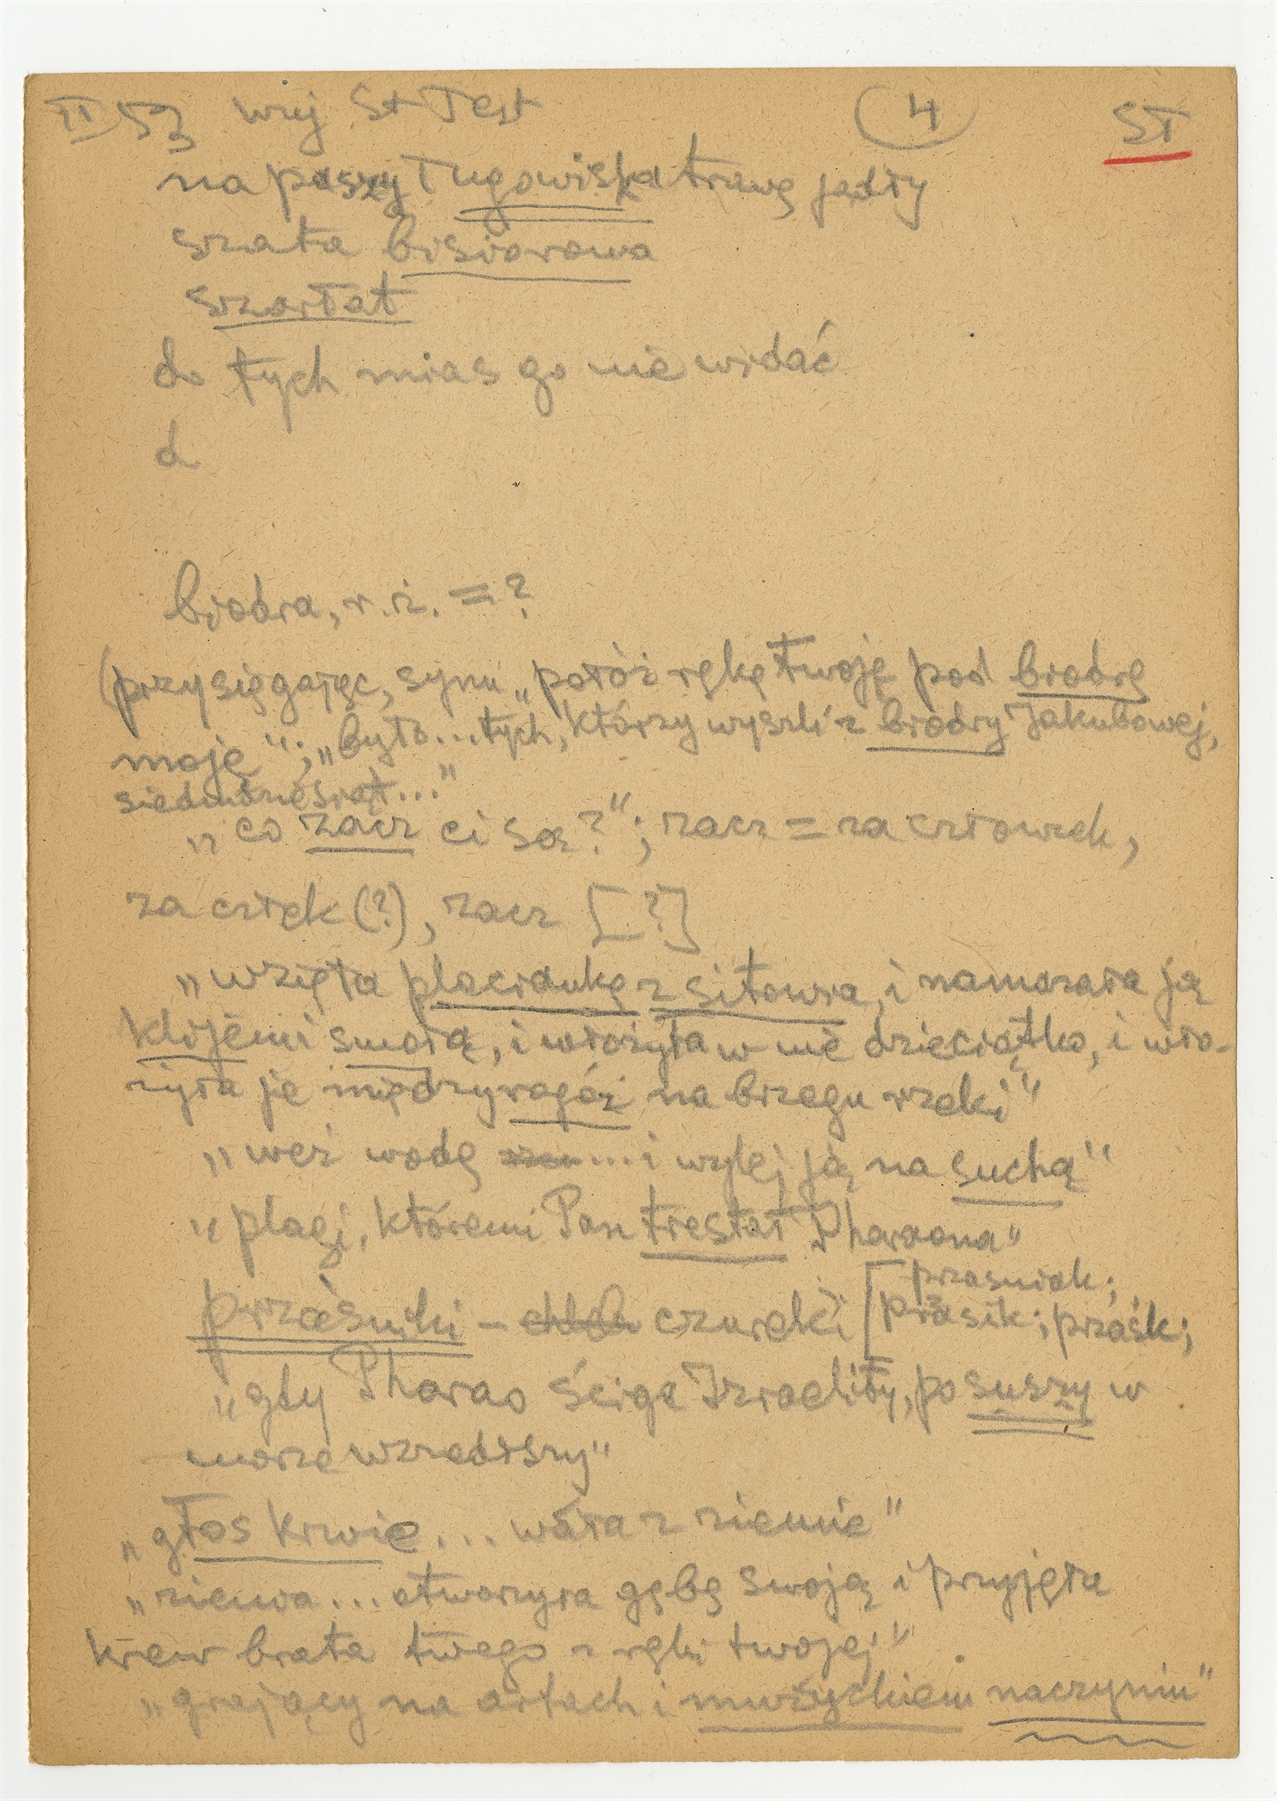 II 53 Wuj St Test 4 ST
na paszy ługowiska trawę jadły
szata bisiorowa
szarłat
do tych mias go nie widać
d
biodra, r. ż. = ?
(przysięgając, synu „połóż rękę twoję pod biodrę
moję"; „było... tych, którzy wyszli z biodry Jakubowej,
siedmdziesiąt..."
„co zacz ci są?"; zacz = za człowiek,
za człek (?), zacz [?]
„wzięła placidukę z sitowia, i namazała ją
klijem i smołą, i włożyła w nie dzieciątko, i wło-
żyła je między rogóż na brzegu rzeki"
„weź wodę ... i wylej ją na suchą"
„plagi, któremi Pan trestał Pharaona"
przaśniak;
przaśniki – chleb czurek [prasik; prząśk;
„gdy Pharao ściga Izraelity, po suszy w
morze wszedłszy"
„głos krwie... wała z ziemie"
„ziemia... otworzyła gębę swoją i przyjęła
krew brata twego z ręki twojej"
„grający na arfach i muzyckiem naczyniu"